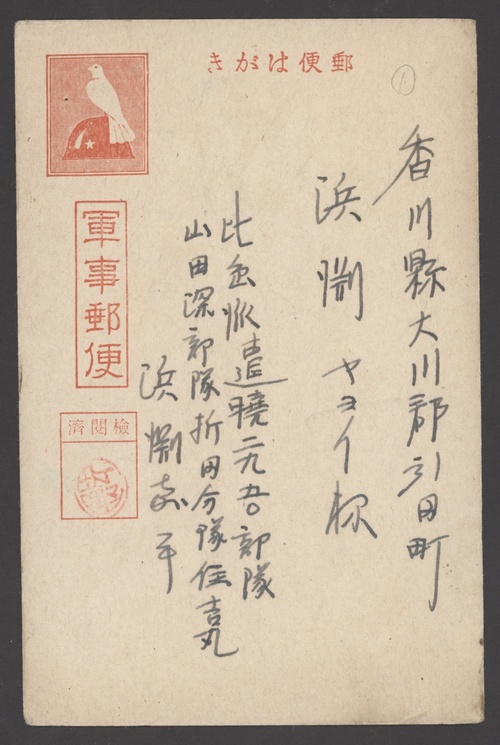 郵便はがき
香川縣大川郡引田町
浜渕ヤヨイ様
比島派遣曉二九五〇部隊
山田深部隊折田分隊住吉丸
浜渕
軍事郵便
檢閲濟